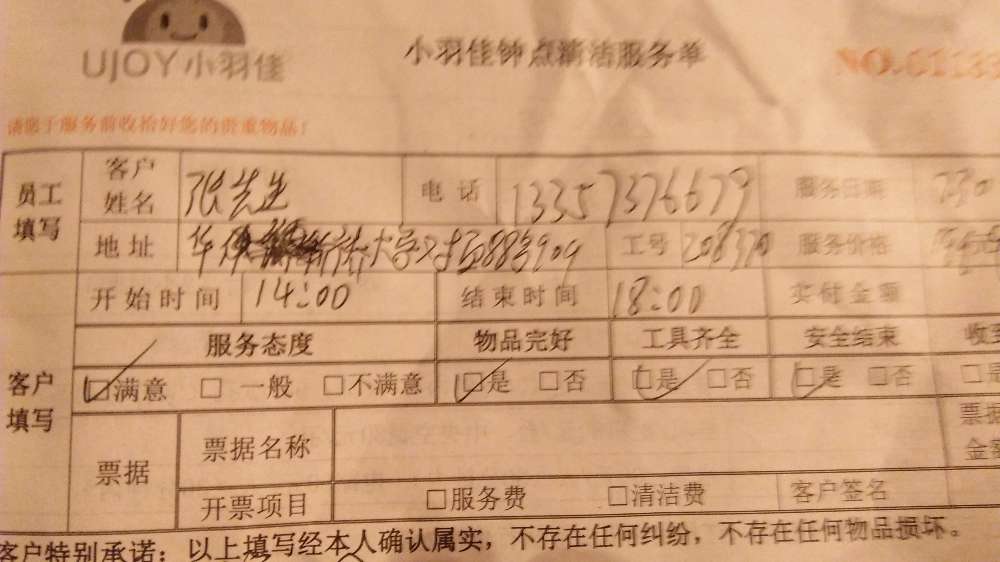 UJOY小羽佳
小羽佳钟点清洁服务单
NO.01183
请您于服务前收拾好您的贵重物品！
员工填写 客户姓名 张先生 电话 13357376679 服务日期
地址 大学对面883号909 工号 208370 服务价格
开始时间 14:00 结束时间 18:00 实付金额
服务态度 物品完好 工具齐全 安全结束 收
客户填写 □满意 □一般 □不满意 □是 □否 □是 □否 □是 □否 □是
票据 票据名称 票据金额
开票项目 □服务费 □清洁费 客户签名
客户特别承诺：以上填写经本人确认属实，不存在任何纠纷，不存在任何物品损坏。